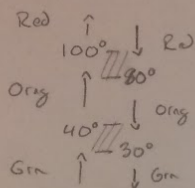 Red
Red
100°
80°
Orag
Orag
40°
30°
Grn
Grn